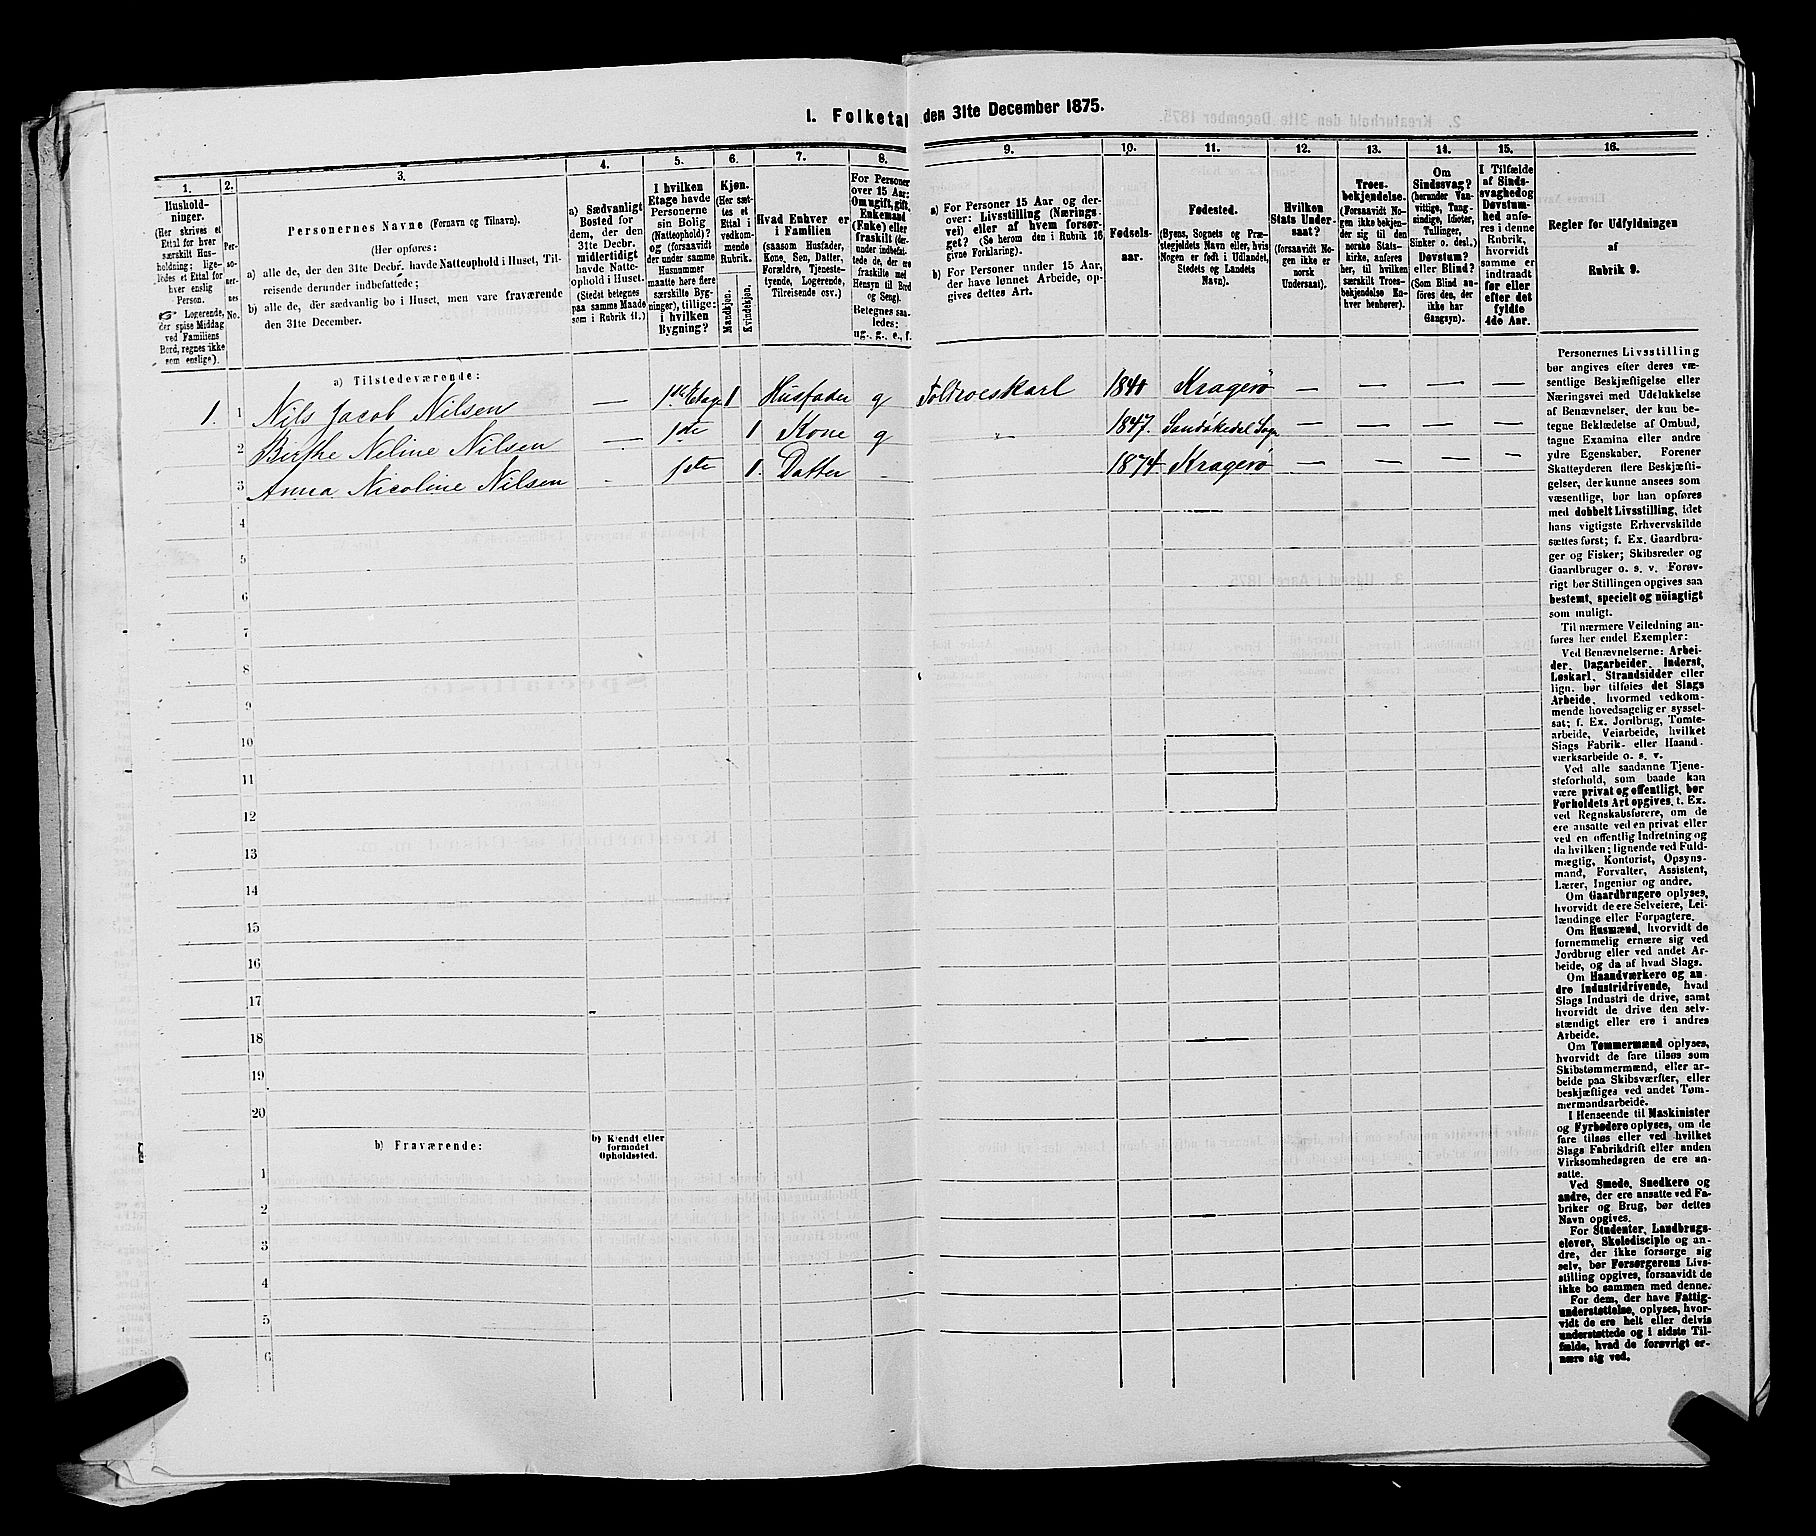 I. Folketal den 31te December 1875.
1.
2.
3.
4.
5.
6.
7.
8.
9.
10.
11.
12.
13.
14.
15.
16.
Hushold-
ninger.
(Her skrives et
Ettal for hver
særskilt Hus-
holdning; lige-
ledes et Ettal for
hver enslig
Person.
☞ Logerende,
der spise Middag
ved Familiens
Bord, regnes ikke
som enslige).
Per-
so-
ner-
nes
No.
Personernes Navne (Fornavn og Tilnavn).
(Her opføres:
a) alle de, der den 31te Decbr. havde Natteophold i Huset, Til-
reisende derunder indbefattede;
b) alle de, der sædvanlig bo i Huset, men vare fraværende
den 31te December.
a) Sædvanligt
Bosted for
dem, der den
31te Decbr.
midlertidigt
havde Natte-
ophold i Huset.
(Stedet betegnes
paa samme Maade
som i Rubrik 11.)
I hvilken
Etage havde
Personerne
sin Bolig
(Natteophold)?
og (forsaavidt
der under samme
Husnummer
maatte høre flere
særskilte Byg-
ninger), tillige:
i hvilken
Bygning?
Kjøn.
(Her sæt-
tes et
Ettal i
vedkom-
mende
Rubrik.
Mandkjøn.
Kvindekjøn.
Hvad Enhver er
i Familien
(saasom Husfader,
Kone, Søn, Datter,
Forældre, Tjeneste-
tyende, Logerende,
Tilreisende osv.)
For Personer
over 15 Aar:
Om ugift, gift,
Enkemand
(Enke) eller
fraskilt (der-
under indbefat-
tede de, der ere
fraskilte med
Hensyn til Bord
og Seng).
Betegnes saa-
ledes:
ug., g., e., f.
a) For Personer 15 Aar og der-
over: Livsstilling (Nærings-
vei) eller af hvem forsør-
get? (Se herom den i Rubrik 16
givne Forklaring).
b) For Personer under 15 Aar,
der have lønnet Arbeide, op-
gives dettes Art.
Fødsels-
aar.
Fødested.
(Byens, Sognets og Præ-
stegjeldets Navn eller, hvis
Nogen er født i Udlandet,
Stedets og Landets
Navn).
Hvilken
Stats Under-
saat?
(forsaavidt No-
gen ikke er
norsk
Undersaat).
Troes-
bekjendelse.
(Forsaavidt No-
gen ikke bekjen-
der sig til den
norske Stats-
kirke, anføres
her, til hvilken
særskilt Troes-
bekjendelse En-
hver henhører).
Om
Sindssvag?
(herunder Van-
vittige, Tung-
sindige, Idioter,
Tullinger,
Sinker o. desl.)
Døvstum?
eller Blind?
(Som Blind an-
føres den, der
ikke har
Gangsyn).
I Tilfælde
af Sinds-
svaghed og
Døvstum-
hed anfø-
res i denne
Rubrik,
hvorvidt
samme er
indtraadt
før eller
efter det
fyldte
4de Aar.
Regler for Udfyldningen
af
Rubrik 9.
a) Tilstedeværende:
1. 1 Nils Jacob Nilsen — 1ste Etage 1 Husfader g Toldroeskarl 184 Kragerø — — — —
2 Birthe Neline Nilsen — 1ste 1 Kone g " 1847. Sandøkedel Sogn — — — —
3 Anna Nicoline Nilsen - 1ste 1. Datter - 1874 Kragerø — — — —
4
5
6
7
8
9
10
11
12
13
14
15
16
17
18
19
20
b) Fraværende:
b) Kjendt eller
formodet
Opholdssted.
1
2
3
4
5
6
Personernes Livsstilling
bør angives efter deres væ-
sentlige Beskjæftigelse eller
Næringsvei med Udelukkelse
af Benævnelser, der kun be-
tegne Beklædelse af Ombud,
tagne Examina eller andre
ydre Egenskaber. Forener
Skatteyderen flere Beskjæfti-
gelser, der kunne ansees som
væsentlige, bør han opføres
med dobbelt Livsstilling, idet
hans vigtigste Erhvervskilde
sættes først; f. Ex. Gaardbru-
ger og Fisker; Skibsreder og
Gaardbruger o. s. v. Forøv-
rigt bør Stillingen opgives saa
bestemt, specielt og nöiagtigt
som muligt.
Til nærmere Veiledning an-
føres her endel Exempler:
Ved Benævnelserne: Arbei-
der, Dagarbeider, Inderst,
Løskarl, Strandsidder eller
lign. bør tilføies det Slags
Arbeide, hvormed vedkom-
mende hovedsagelig er syssel-
sat; f. Ex. Jordbrug, Tomte-
arbeide, Veiarbeide, hvilket
Slags Fabrik- eller Haand-
værksarbeide o. s. v.
Ved alle saadanne Tjene-
steforhold, som baade kan
være privat og offentligt, bør
Forholdets Art opgives, t. Ex.
ved Regnskabsførere, om de
ere ansatte ved en privat eller
ved en offentlig Indretning og
da hvilken; lignende ved Fuld-
mægtig, Kontorist, Opsyns-
mand, Forvalter, Assistent,
Lærer, Ingeniør og andre.
Om Gaardbrugere oplyses,
hvorvidt de ere Selveiere, Lei-
lændinge eller Forpagtere.
Om Husmænd, hvorvidt de
fornemmelig ernære sig ved
Jordbrug eller ved andet Ar-
beide, og da af hvad Slags.
Om Haandværkere og an-
dre Industridrivende, hvad
Slags Industri de drive, samt
hvorvidt de drive den selv-
stændigt eller ere i andres
Arbeide.
Om Tømmermænd oplyses,
hvorvidt de fare tilsøs som
Skibstømmermænd, eller ar-
beide paa Skibsværfter, eller
beskjæftiges ved andet Tøm-
mermandsarbeide.
I Henseende til Maskinister
og Fyrbødere oplyses, om de
fare tilsøs eller ved hvilket
Slags Fabrikdrift eller anden
Virksomhedsgren de ere an-
satte.
Ved Smede, Snedkere og
andre, der ere ansatte ved Fa-
briker og Brug, bør dettes
Navn opgives.
For Studenter, Landbrugs-
elever, Skoledisciple og an-
dre, der ikke forsørge sig
selv, bør Forsørgerens Livs-
stilling opgives, forsaavidt de
ikke bo sammen med denne.
For dem, der have Fattig-
understøttelse, oplyses, hvor-
vidt de ere helt eller delvis
understøttede og i sidste Til-
fælde, hvad de forøvrigt er-
nære sig ved.